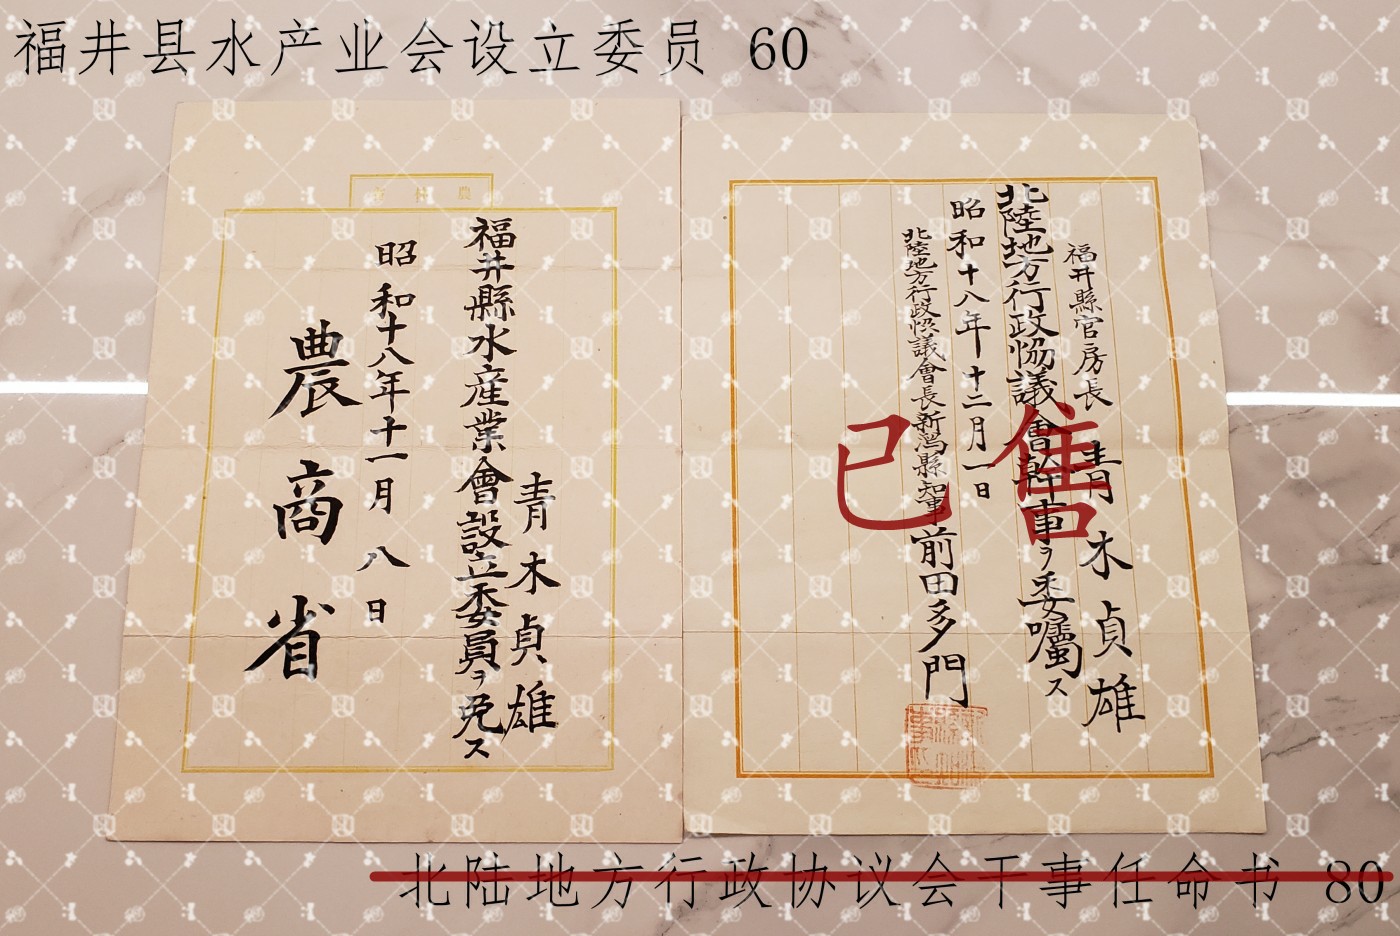 福井县水产业会设立委员 60
福井縣官房長 青木貞雄
北陸地方行政協議會幹事ヲ委囑ス
昭和十八年十二月一日
北陸地方行政協議會長新潟縣知事前田多門
已售
青木貞雄
福井縣水産業會設立委員ヲ免ス
昭和十八年十一月八日
農商省
北陆地方行政协议会干事任命书 80